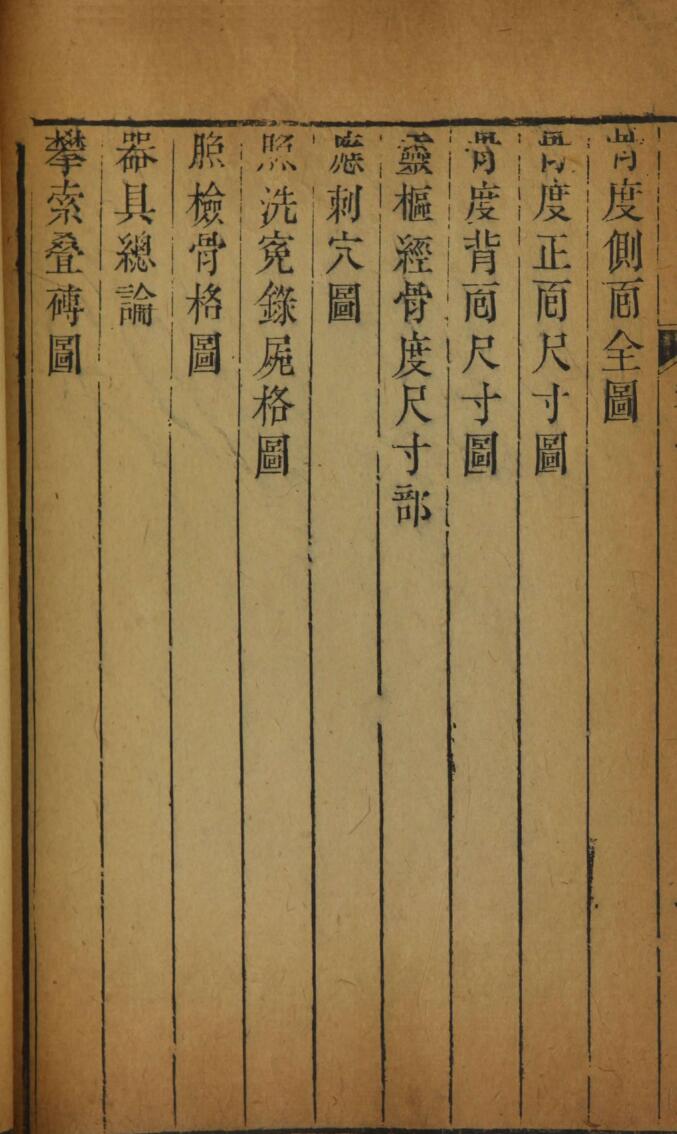 骨度側面全圖
骨度正面尺寸圖
骨度背面尺寸圖
靈樞經骨度尺寸部
應刺穴圖
照洗寃錄屍格圖
照檢骨格圖
器具總論
攀索叠磚圖